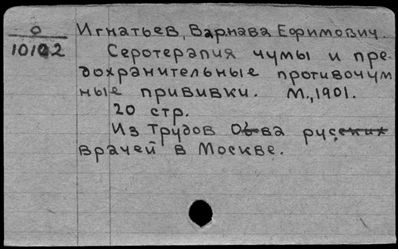 О Игнатьев, Варнава Ефимович.
10102 Серотерапия чумы и пре-
дохранительные противочум
ные прививки. М., 1901.
20 стр.
Из Трудов О-ва русских
врачей в Москве.